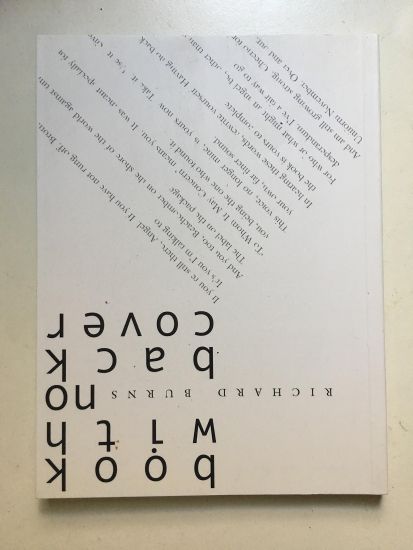 book
with
no
RICHARD BURNS
back
cover
If you're still there, Angel. If you have not rung off.
It's you I'm talking to
And you too, Beachcomber on the shore of the world against
The label on the package
'To Whom It May Concern' means you. It was meant specially for
you, being the one who found it.
This voice, no longer mine, is yours now. Take it. Use it.
your own, far finer sound.
In hearing these words, rewrite yourself. Having no back
the book is yours to complete
For who, or what might an angel be, other than
desperandum. I've a fair way to go
And am still growing strong. Cheerio for
Unicorn November. Over and out.